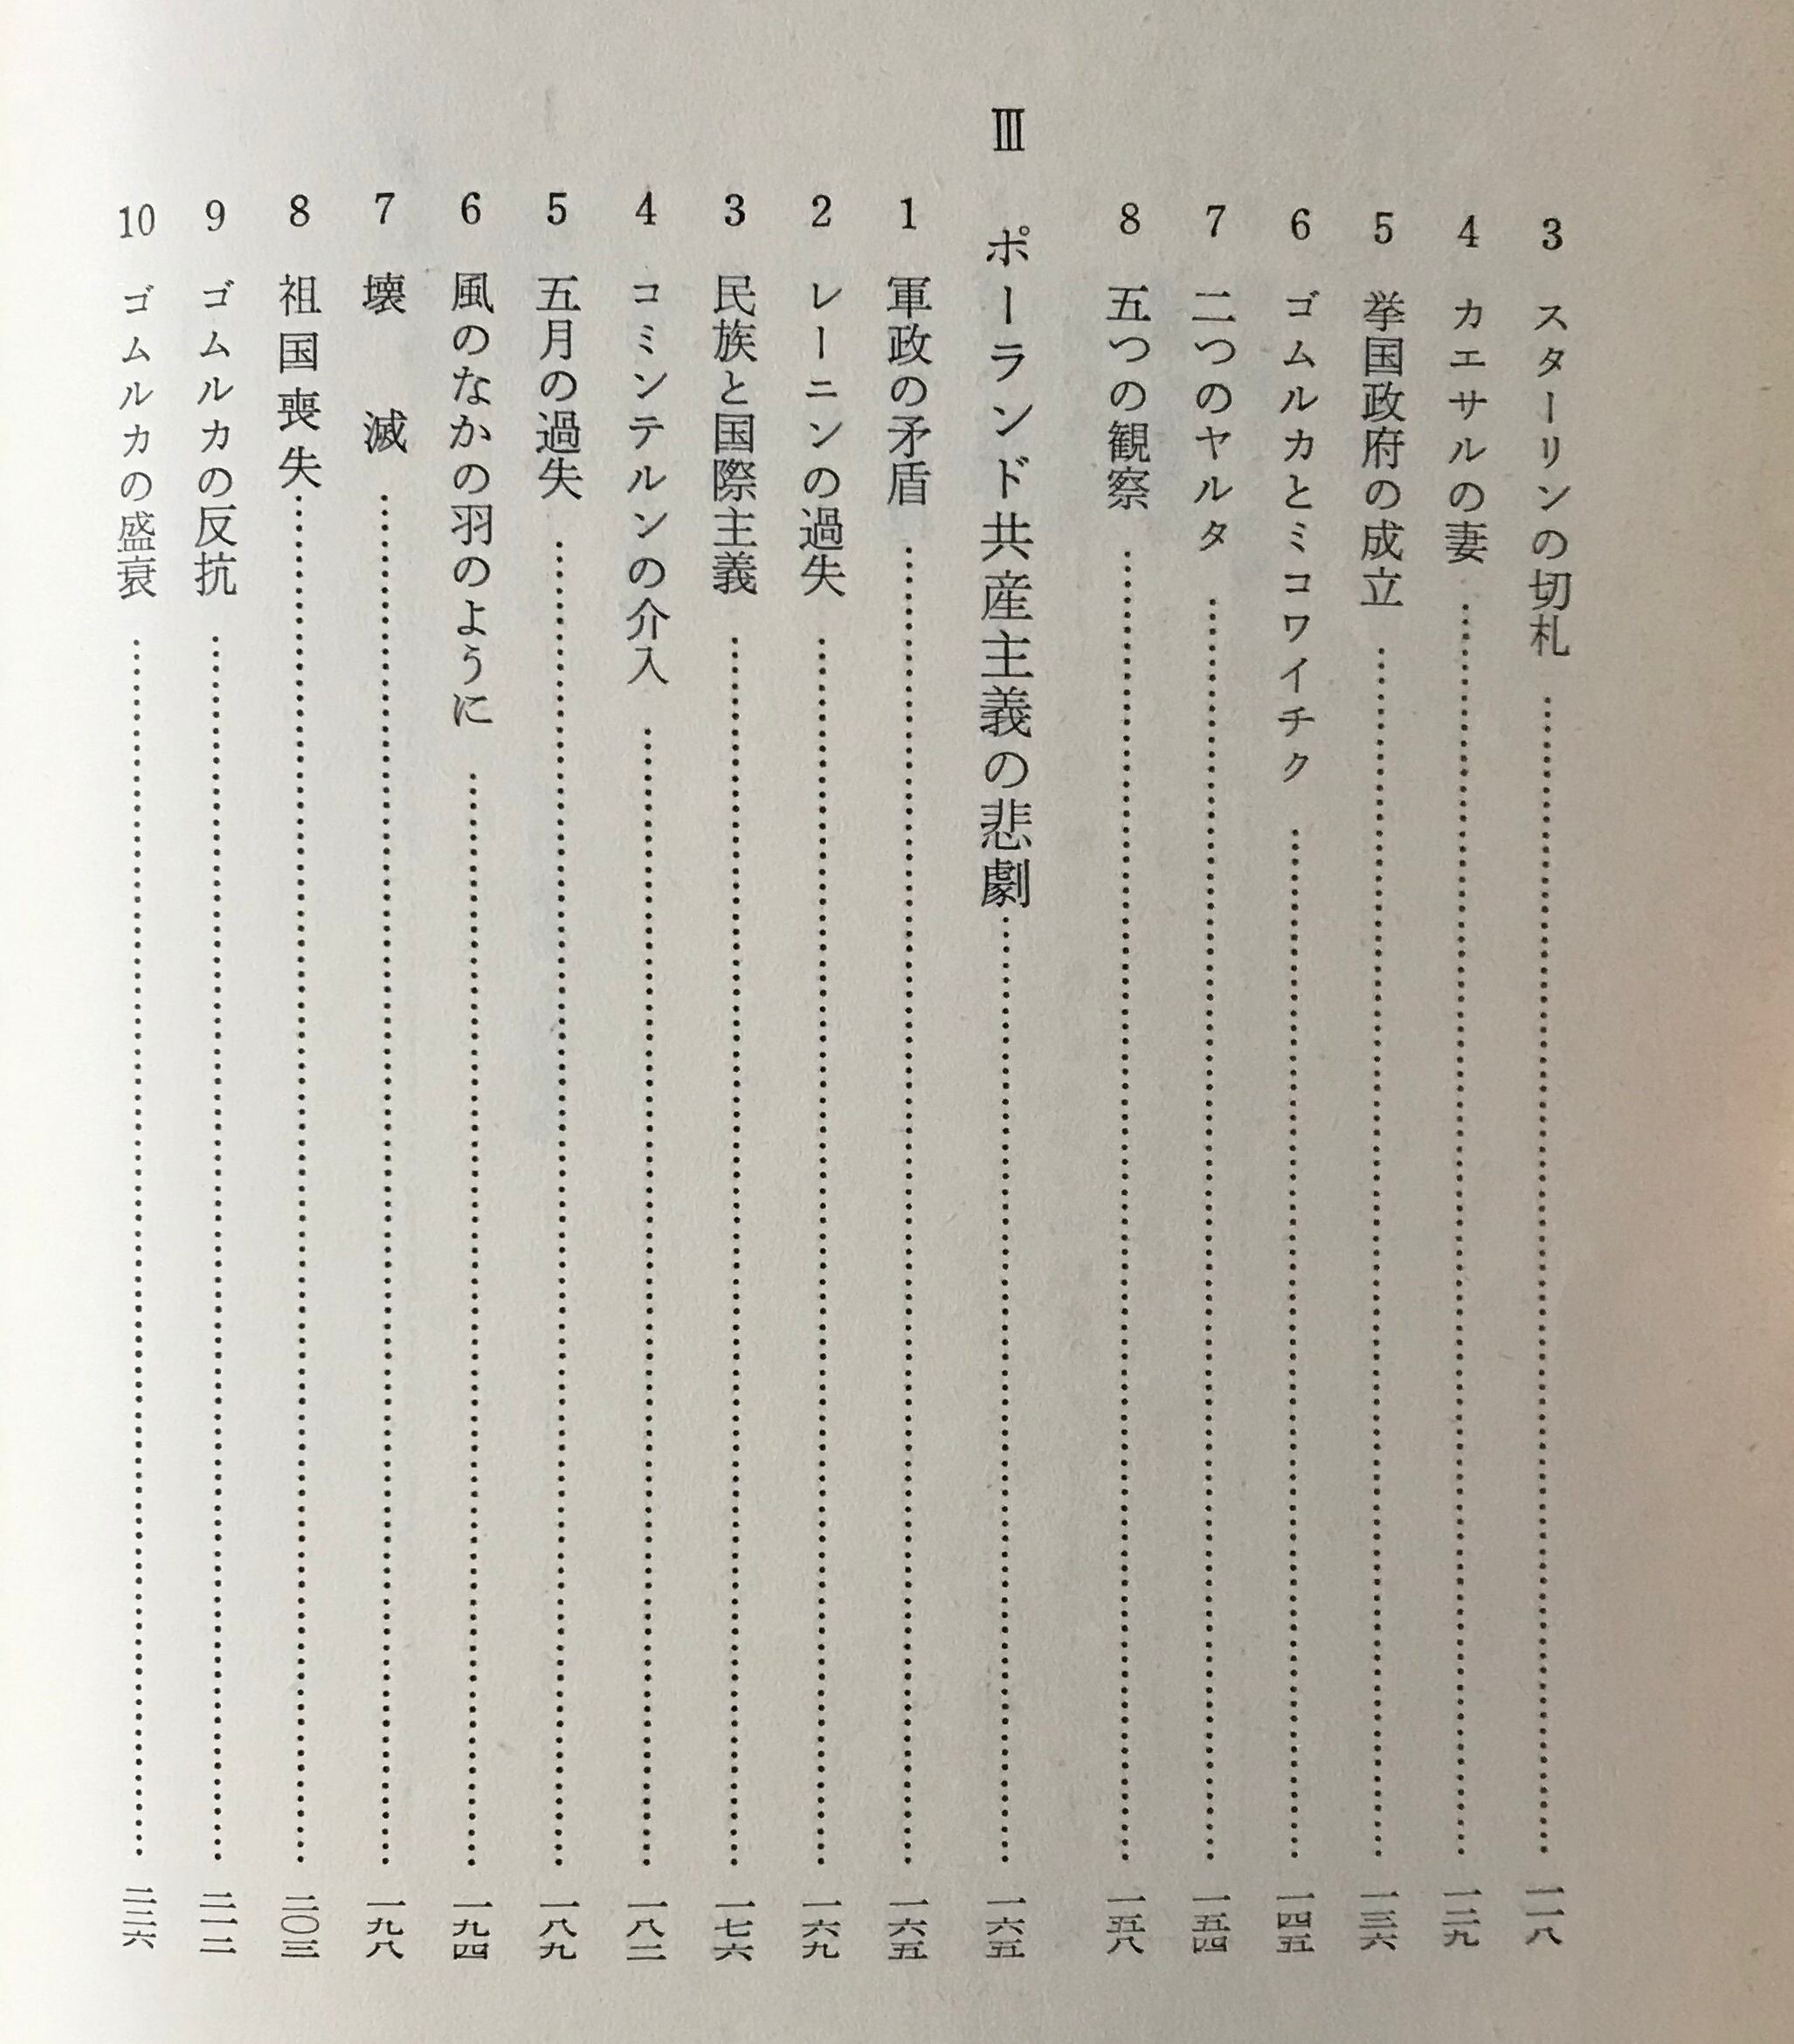 3 スターリンの切札……一一八
4 カエサルの妻……一二九
5 挙国政府の成立……一三六
6 ゴムルカとミコワイチク……一四五
7 二つのヤルタ……一五四
8 五つの観察……一五八
Ⅲ ポーランド共産主義の悲劇……一六五
1 軍政の矛盾……一六五
2 レーニンの過失……一六九
3 民族と国際主義……一七六
4 コミンテルンの介入……一八二
5 五月の過失……一八九
6 風のなかの羽のように……一九四
7 壊滅……一九八
8 祖国喪失……二〇三
9 ゴムルカの反抗……二一二
10 ゴムルカの盛衰……二二六